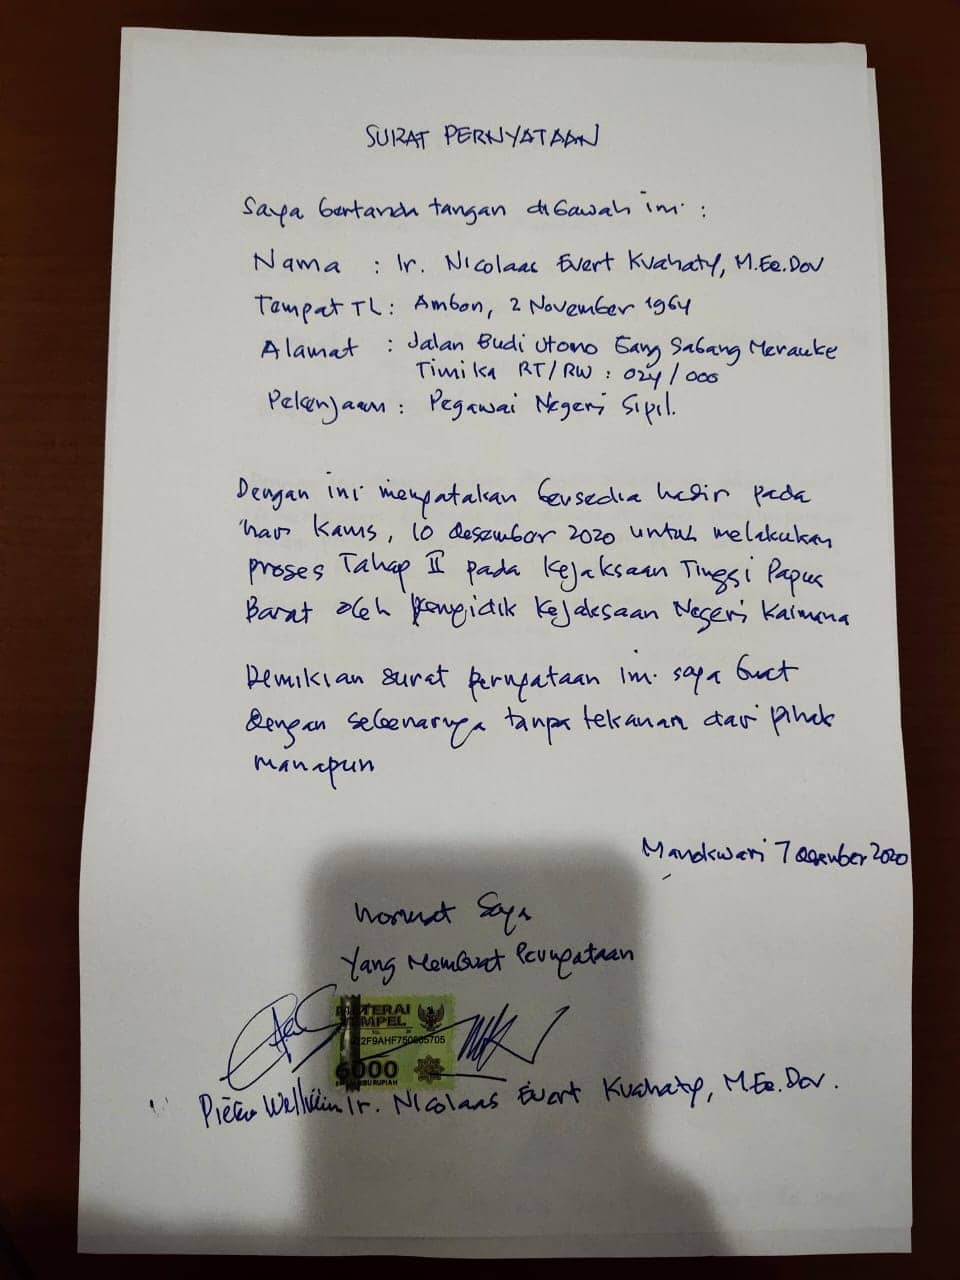 SURAT PERNYATAAN
Saya bertanda tangan dibawah ini :
Nama : Ir. Nicolaas Evert Kuahaty, M.Ec.Dev
Tempat TL : Ambon, 2 November 1964
Alamat : Jalan Budi Utomo Gang Sabang Merauke
Timika RT/RW : 024/000
Pekerjaan : Pegawai Negeri Sipil.
Dengan ini menyatakan bersedia hadir pada
hari Kamis, 10 Desember 2020 untuk melakukan
proses Tahap II pada Kejaksaan Tinggi Papua
Barat oleh Penyidik Kejaksaan Negeri Kaimana
Demikian surat pernyataan ini saya buat
dengan sebenarnya tanpa tekanan dari pihak
manapun
Manokwari 7 Desember 2020
Hormat Saya
Yang Membuat Pernyataan
TERAI
MPEL
6000
RIBU RUPIAH
Pieter Ir. Nicolaas Evert Kuahaty, M.Ec.Dev.